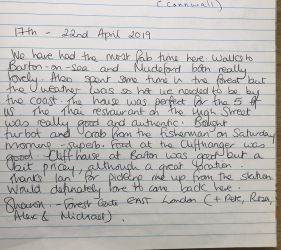 (Cornwall)
17th - 22nd April 2019
We have had the most fab time here. Walks to
Barton-on-sea and Mudeford both really
lovely. Also spent some time in the forest but
the weather was so hot we needed to be by
the coast. The house was perfect for the 5 of
us. The Thai restaurant on the High Street
was really good and authentic. Bought
turbot and crab from the fisherman on Saturday
morning - superb. Food at the Cliffhanger was
good. Cliff house at Barton was good but a
bit pricey, although a great location.
Thanks Ian for picking me up from the station
Would definately love to come back here.
Sharon - Forest Gate east London (+ Pete, Rosa,
Alex & Michael).